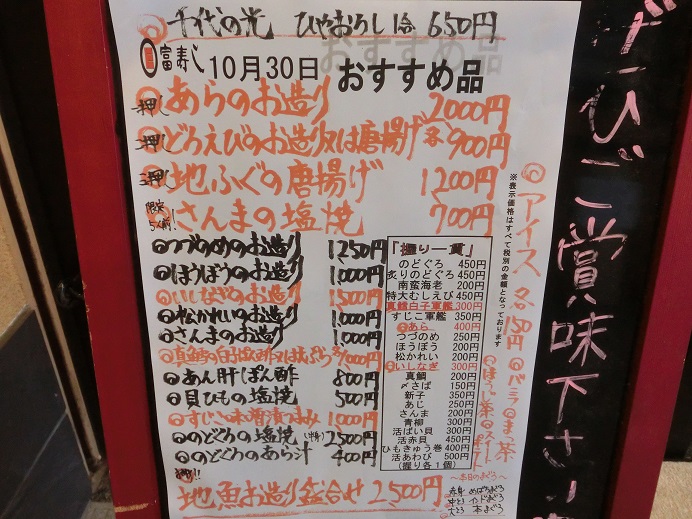 千代の光 ひやおろし 1合 650円
富寿し 10月30日 おすすめ品
一押し あらのお造り 2000円
二押し どろえびのお造り又は唐揚げ 各900円
三押し 地ふぐの唐揚げ 1200円
限定5人前! さんまの塩焼 700円
つづのめのお造り 1250円
ほうぼうのお造り 1000円
いしなぎのお造り 1500円
松かれいのお造り 1000円
さんまのお造り 1000円
真鱈の白子ぽん酢又は天ぷら
あん肝ぽん酢 800円
貝ひもの塩焼 500円
すじこ味噌漬つまみ 1,000円
のどぐろの塩焼(半身) 2500円
のどぐろのあら汁 400円
地魚お造り盛合せ 2500円
「握り一貫」
のどぐろ 450円
炙りのどぐろ 450円
南蛮海老 200円
特大むしえび 450円
真鱈白子軍艦 300円
すじこ軍艦 350円
あら 400円
つづのめ 250円
ほうぼう 200円
松かれい 200円
いしなぎ 300円
真鯛 200円
〆さば 150円
新子 350円
あじ 250円
さんま 200円
青柳 300円
活ばい貝 300円
活赤貝 450円
ひもきゅう巻 400円
活あわび 500円
(握り各1個)
※表示価格はすべて税別の金額となっております
アイス 各150円
バニラ まっ茶
ほうじ茶
~本日のまぐろ~
赤身 めばちまぐろ
中とろ インドまぐろ
大とろ 本まぐろ
ぜひご賞味下さい